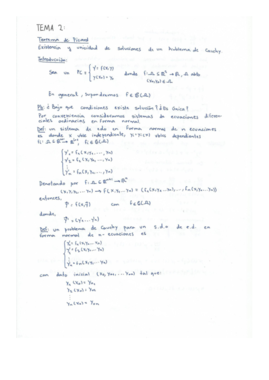 TEMA 2:
Teorema de Picard
Existencia y unicidad de soluciones de un Problema de Cauchy
Introducción:
Sea un P.C ≡ { y' = f(x,y)
y(x₀) = y₀ donde f: Ω ⊆ ℝ² → ℝ, Ω abto
(x₀,y₀) ∈ Ω
En general, supondremos f ∈ C(Ω)
¿Bajo que condiciones existe solución? ¿Es única?
Por conveniencia consideramos sistemas de ecuaciones diferen-
ciales ordinarias en forma normal.
Def: un sistema de edo en forma normal de n ecuaciones
es donde x vble independiente,
f: Ω ⊆ ℝⁿ⁺¹ → ℝ
y'₁ = f₁(x, y₁, ..., yₙ)
y'₂ = f₂(x, y₁, ..., yₙ)
⋮
y'ₙ = fₙ(x, y₁, ..., yₙ)
Denotando por f: Ω ⊆ ℝⁿ⁺¹ → ℝⁿ
(x, y₁, ..., yₙ) → f(x, y₁, ..., yₙ) = (f₁(x, y₁, ..., yₙ), ..., fₙ(x, y₁, ..., yₙ))
entonces,
y' = f(x, y) con f ∈ C(Ω)
donde,
y' = (y'₁ ... y'ₙ)
Def: un problema de Cauchy para un s.d.o de e.d. en
forma normal de n-ecuaciones es
y'₁ = f₁(x, y₁, ... yₙ)
y'₂ = f₂(x, y₁, ... yₙ)
⋮
y'ₙ = fₙ(x, y₁, ... yₙ)
con dato inicial (x₀, y₀₁, ..., y₀ₙ) tal que:
y₁(x₀) = y₀₁
y₂(x₀) = y₀₂
⋮
yₙ(x₀) = y₀ₙ